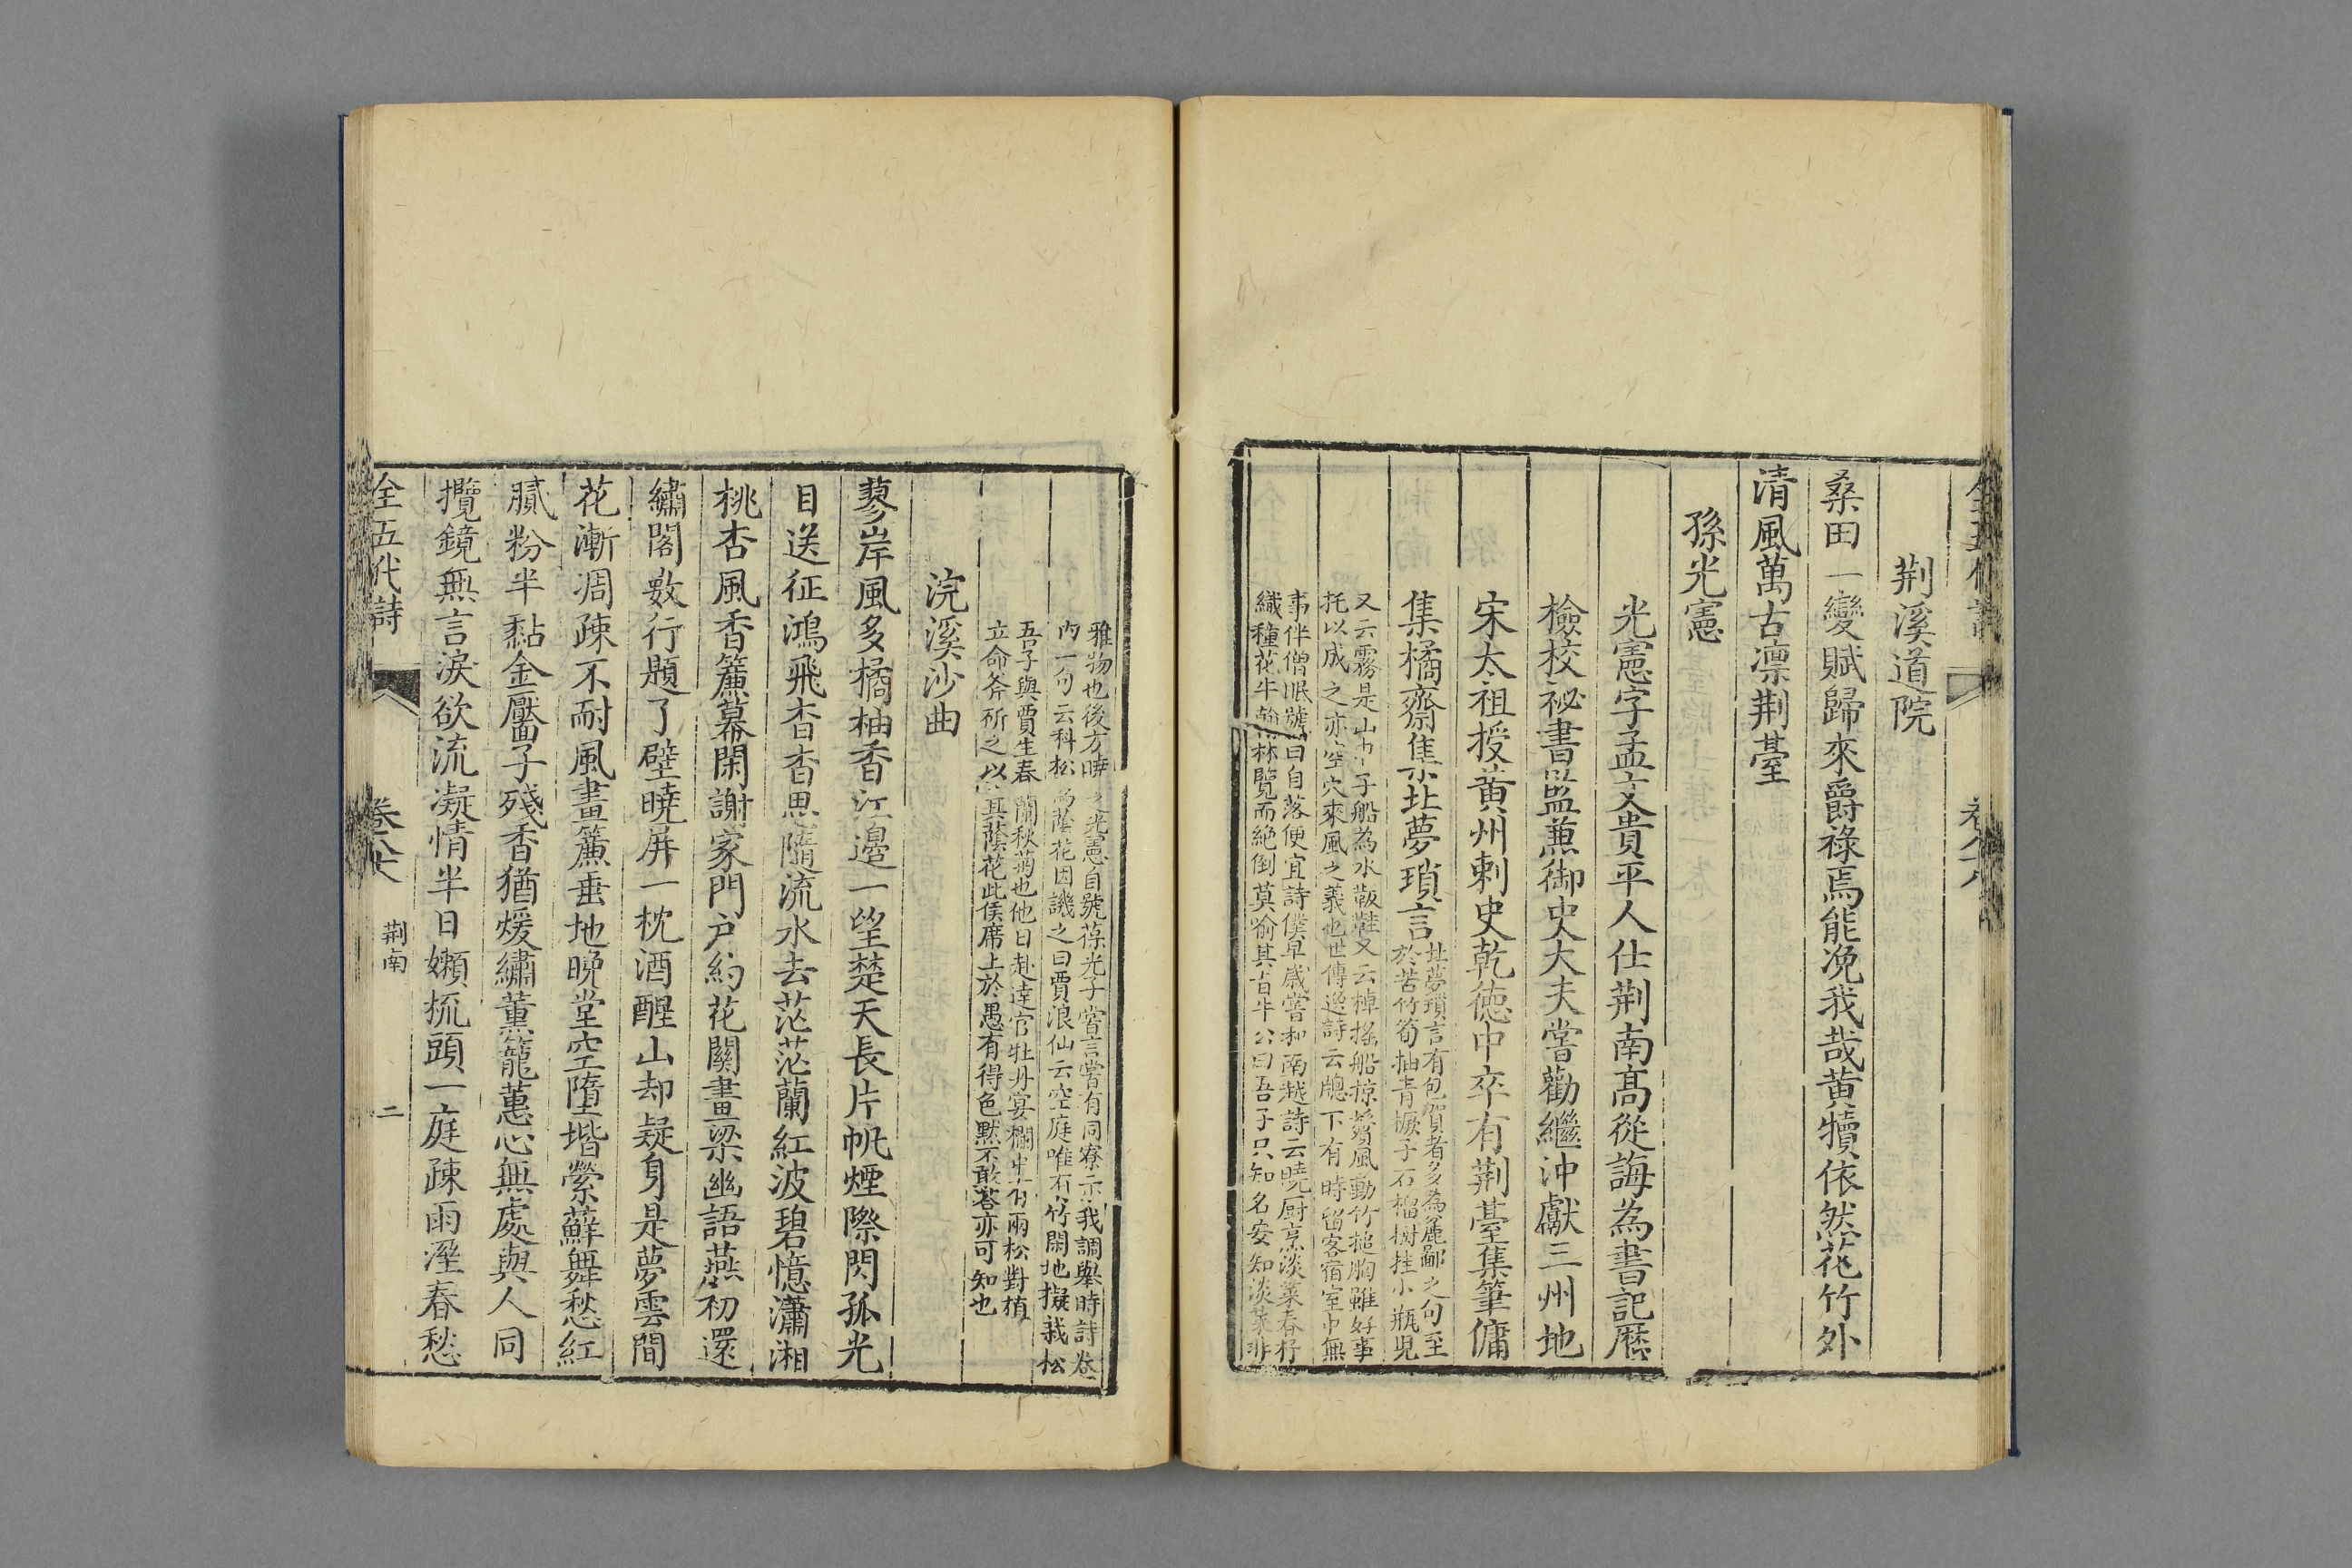 荆溪道院
桑田一變賦歸來爵祿焉能浼我哉黃犢依然花竹外
清風萬古凛荆臺
孫光憲
光憲字孟文貴平人仕荆南高從誨為書記歷
檢校祕書監蒹御史大夫嘗勸繼沖獻三州地
宋太祖授黃州刺史乾德中卒有荆臺集筆傭
集橘齋集北夢瑣言
北夢瑣言有包賀者多為麄鄙之句至
於苦竹筍抽青橛子石榴樹挂小瓶兒
又云霧是山巾子船為水靸鞋又云棹搖船掠鬢風動竹搥胸雖好事
托以成之亦空穴來風之義也世傳逸詩云牕下有時留客宿室中無
事伴僧眠號曰自落便宜詩僕早歲嘗和南越詩云曉厨烹淡菜春杼
織穜花牛翰林覽而絶倒莫喻其旨牛公曰吾子只知名安知淡菜非
雅物也後方曉之光憲自號葆光子嘗言嘗有同寮示我調舉時詩卷
内一句云科松為蔭花因譏之曰賈浪仙云空庭唯有竹閑地擬栽松
吾子與賈生春蘭秋菊也他日赴達官牡丹宴欄中有兩松對植
立命斧斫之以其蔭花此侯席上於愚有得色默不敢荅亦可知也
浣溪沙曲
蓼岸風多橘柚香江邊一望楚天長片帆煙際閃孤光
目送征鴻飛杳杳思隨流水去茫茫蘭紅波碧憶瀟湘
桃杏風香簾幕閑謝家門户約花關畫梁幽語燕初還
繡閣數行題了壁曉屏一枕酒醒山却疑身是夢雲間
花漸凋疎不耐風畫簾垂地晚堂空墮堦縈蘚舞愁紅
膩粉半黏金靨子殘香猶煖繡薰籠蕙心無處與人同
攬鏡無言淚欲流凝情半日嬾梳頭一庭疎雨溼春愁
全五代詩 荆南 二